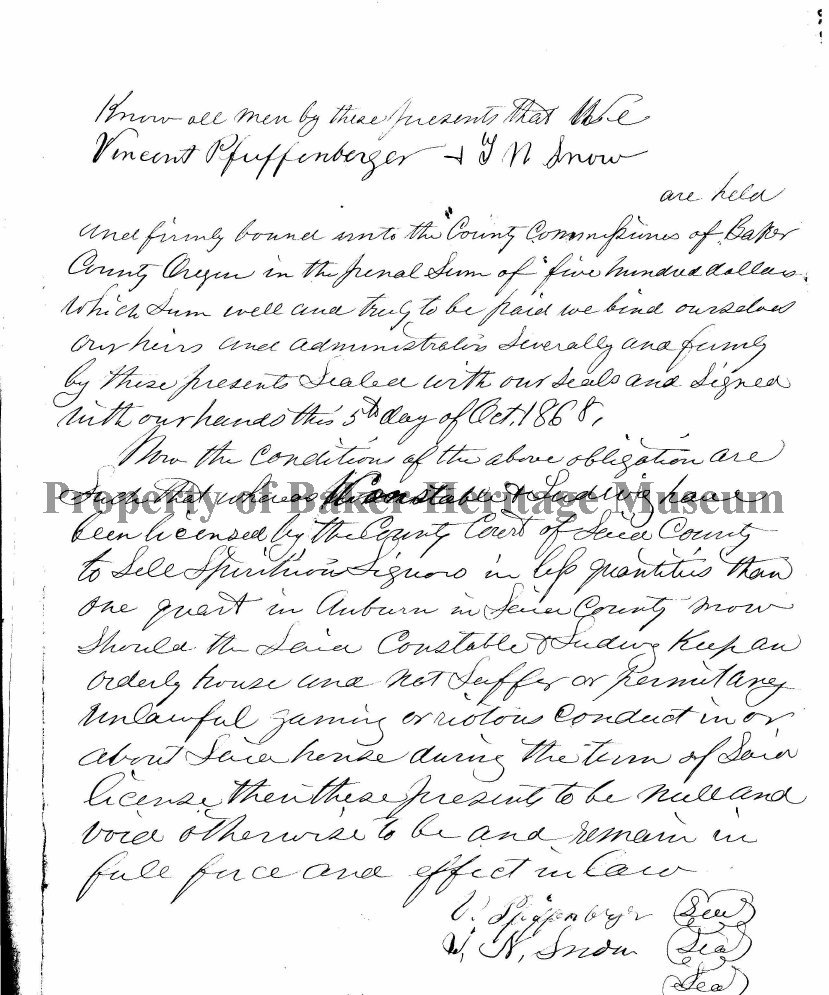 Know all men by these presents that We
Vincent Pfuffenberger & T N Snow
are held
and firmly bound unto the "County Commissiones of Baker
County Oregon in the penal Sum of "five hundred dollars.
Which Sum well and truly to be paid we bind ourselves
our heirs and administrators Severally and firmly
by these presents Sealed with our seals and Signed
with our hands this 5th day of Oct. 1868,
Now the Condition of the above obligation are
Such that whereas Constable & Ludwig have
Property of Baker Heritage Museum
been licensed by the County Court of Said County
to Sell Spiritious Liquors in less quantities than
one quart in Auburn in Said County now
Should the Said Constable & Ludwig Keep an
orderly house and not Suffer or permit any
unlawful gaming or riotous Conduct in or
about Said house during the term of Said
license then these presents to be null and
void otherwise to be and remain in
full force and effect in law
V. Pfuffenberger Seal
T. N. Snow Seal
Seal